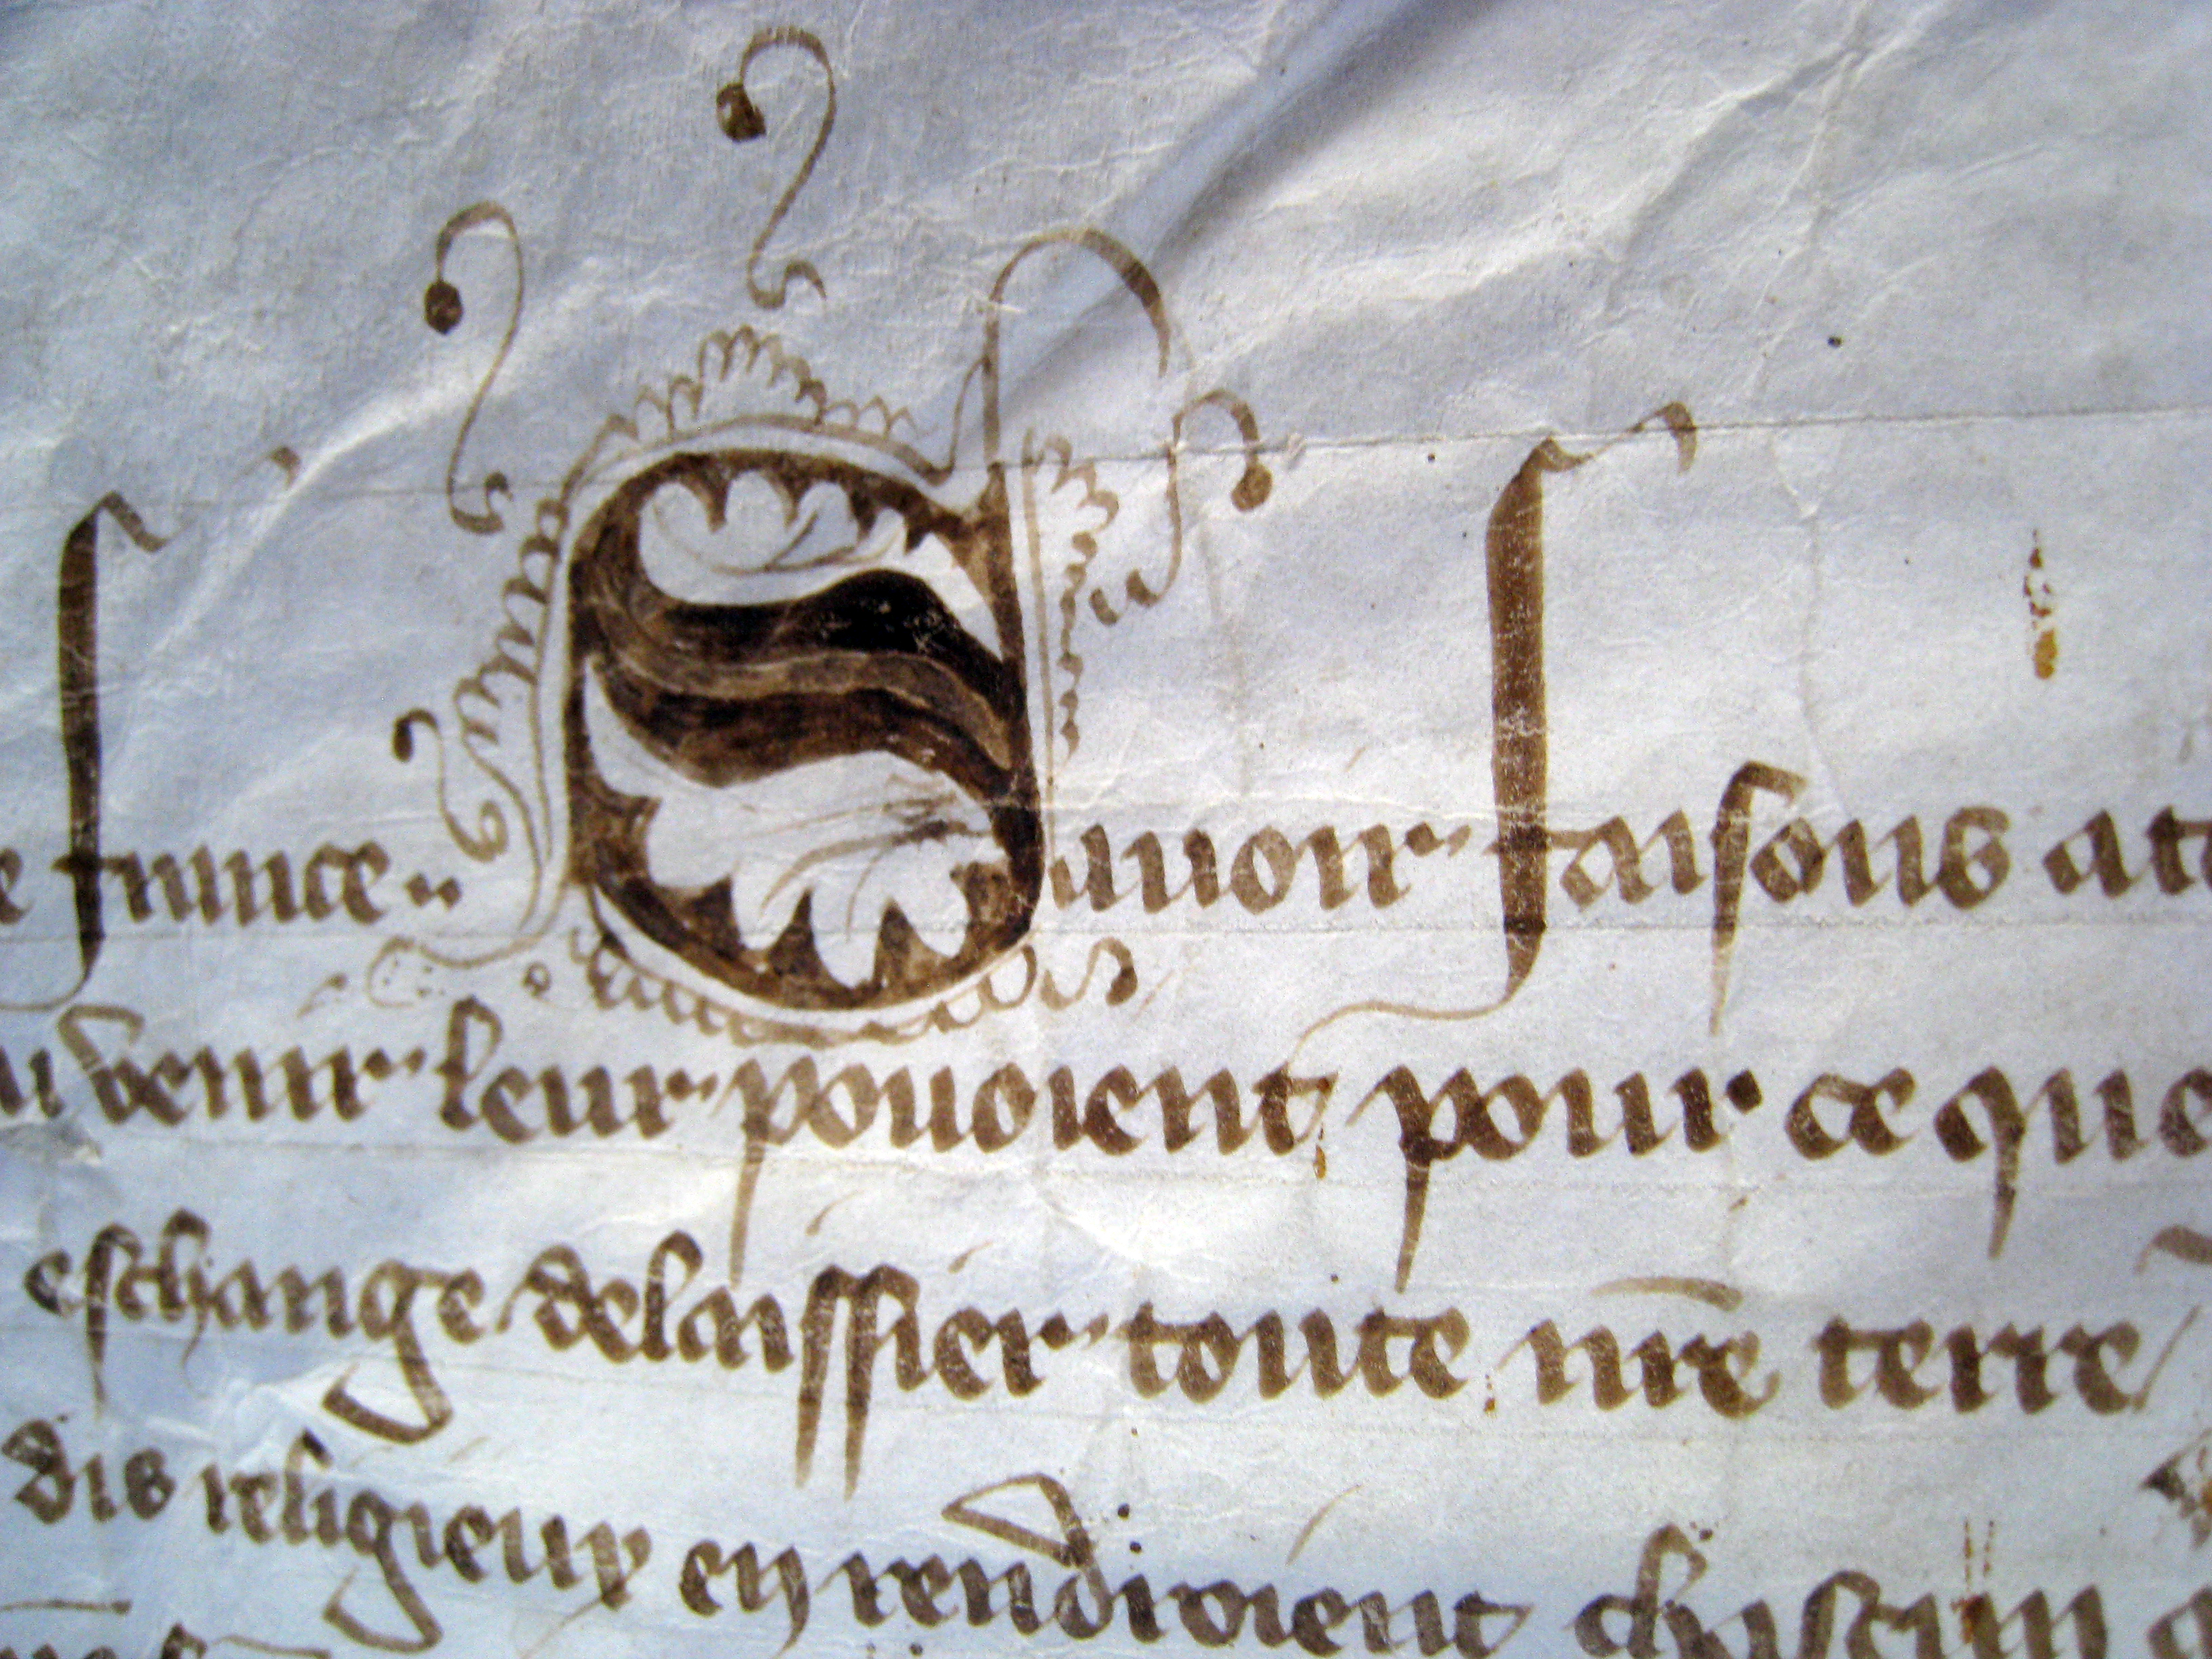 france .. Sauoir faisons a
venir leur pouoient pour ce que
eschange delaissier toute nr̃e terre
dis religieux en rendroient chascun